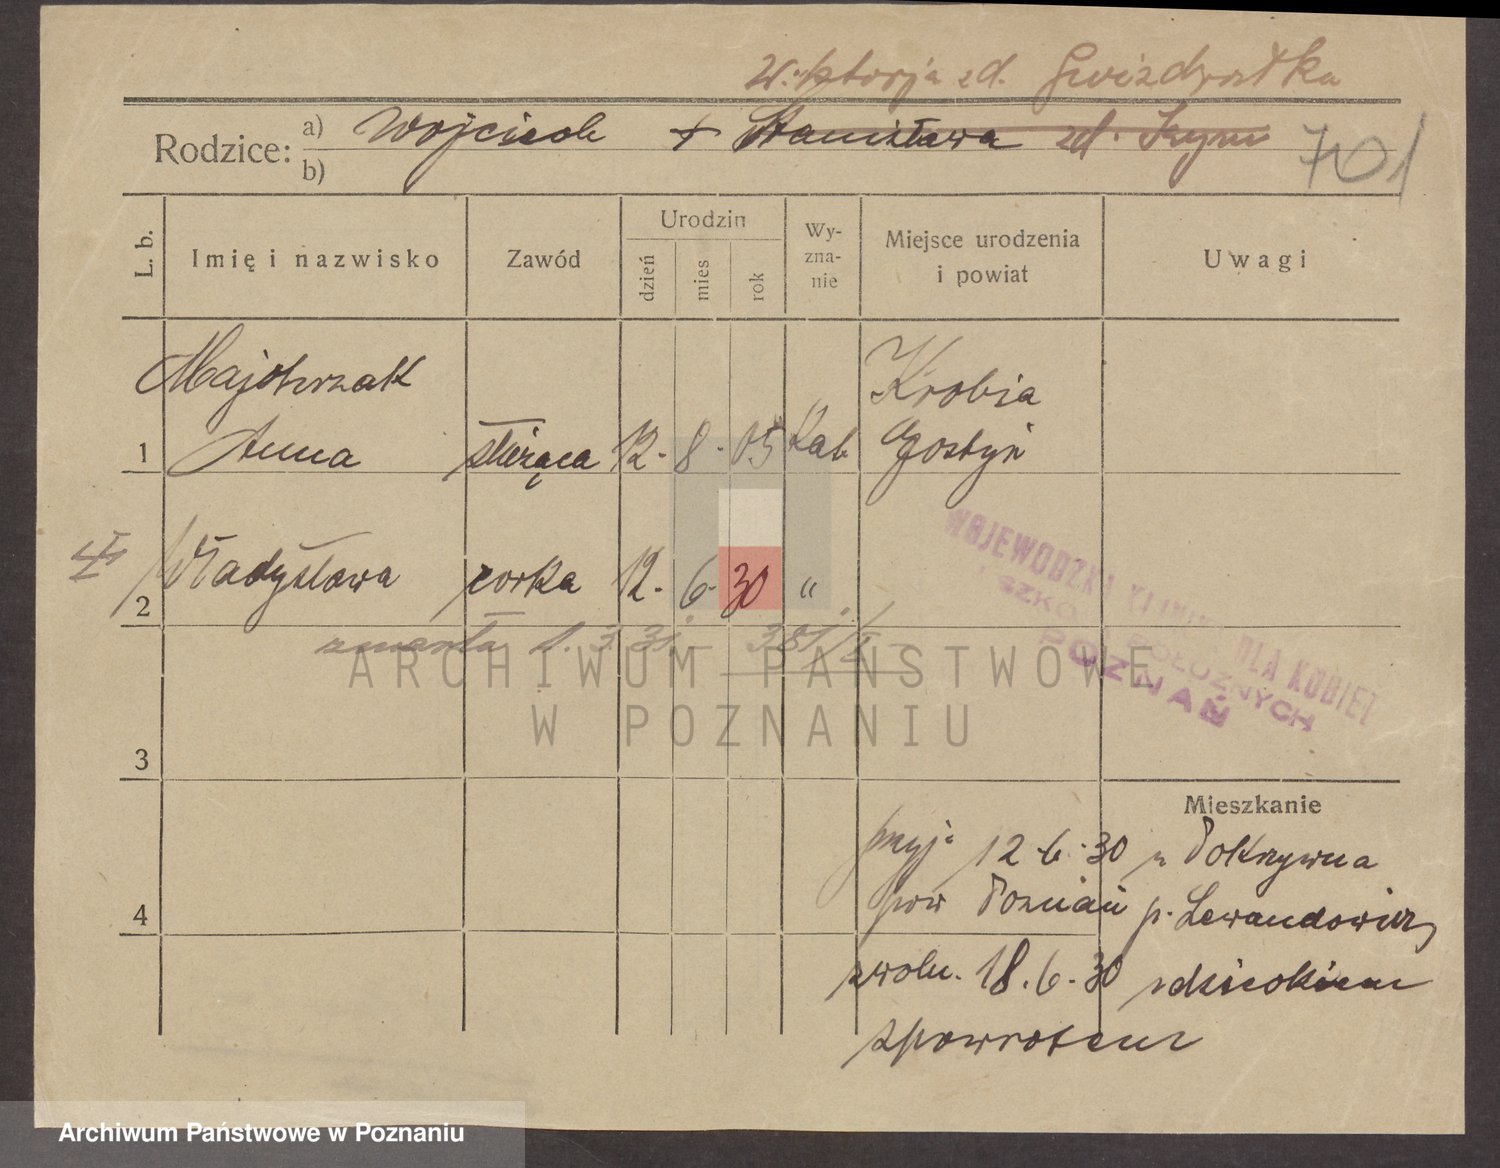 Wiktorja zd. Gwizdrostka
Rodzice: a) Wojciech + Stanisława zd. 701
b)
L. b. Imię i nazwisko Zawód Urodzin dzień mies rok Wyznanie Miejsce urodzenia i powiat Uwagi
Majchrzak Krobia
1 Anna służąca 12. 8. 05 Kat Gostyń
2 Władysława corka 12. 6. 30 "
zmarła 31. 381/I
WOJEWÓDZKA KLINIKA DLA KOBIET
I SZKOŁA POŁOŻNYCH
POZNAŃ
ARCHIWUM PAŃSTWOWE
W POZNANIU
3
Mieszkanie
przyj. 12.6.30 z Pokrzywna
4 pow Poznań p. Lewandowicz
zwoln. 18.6.30 z dzieckiem
zpowrotem
Archiwum Państwowe w Poznaniu